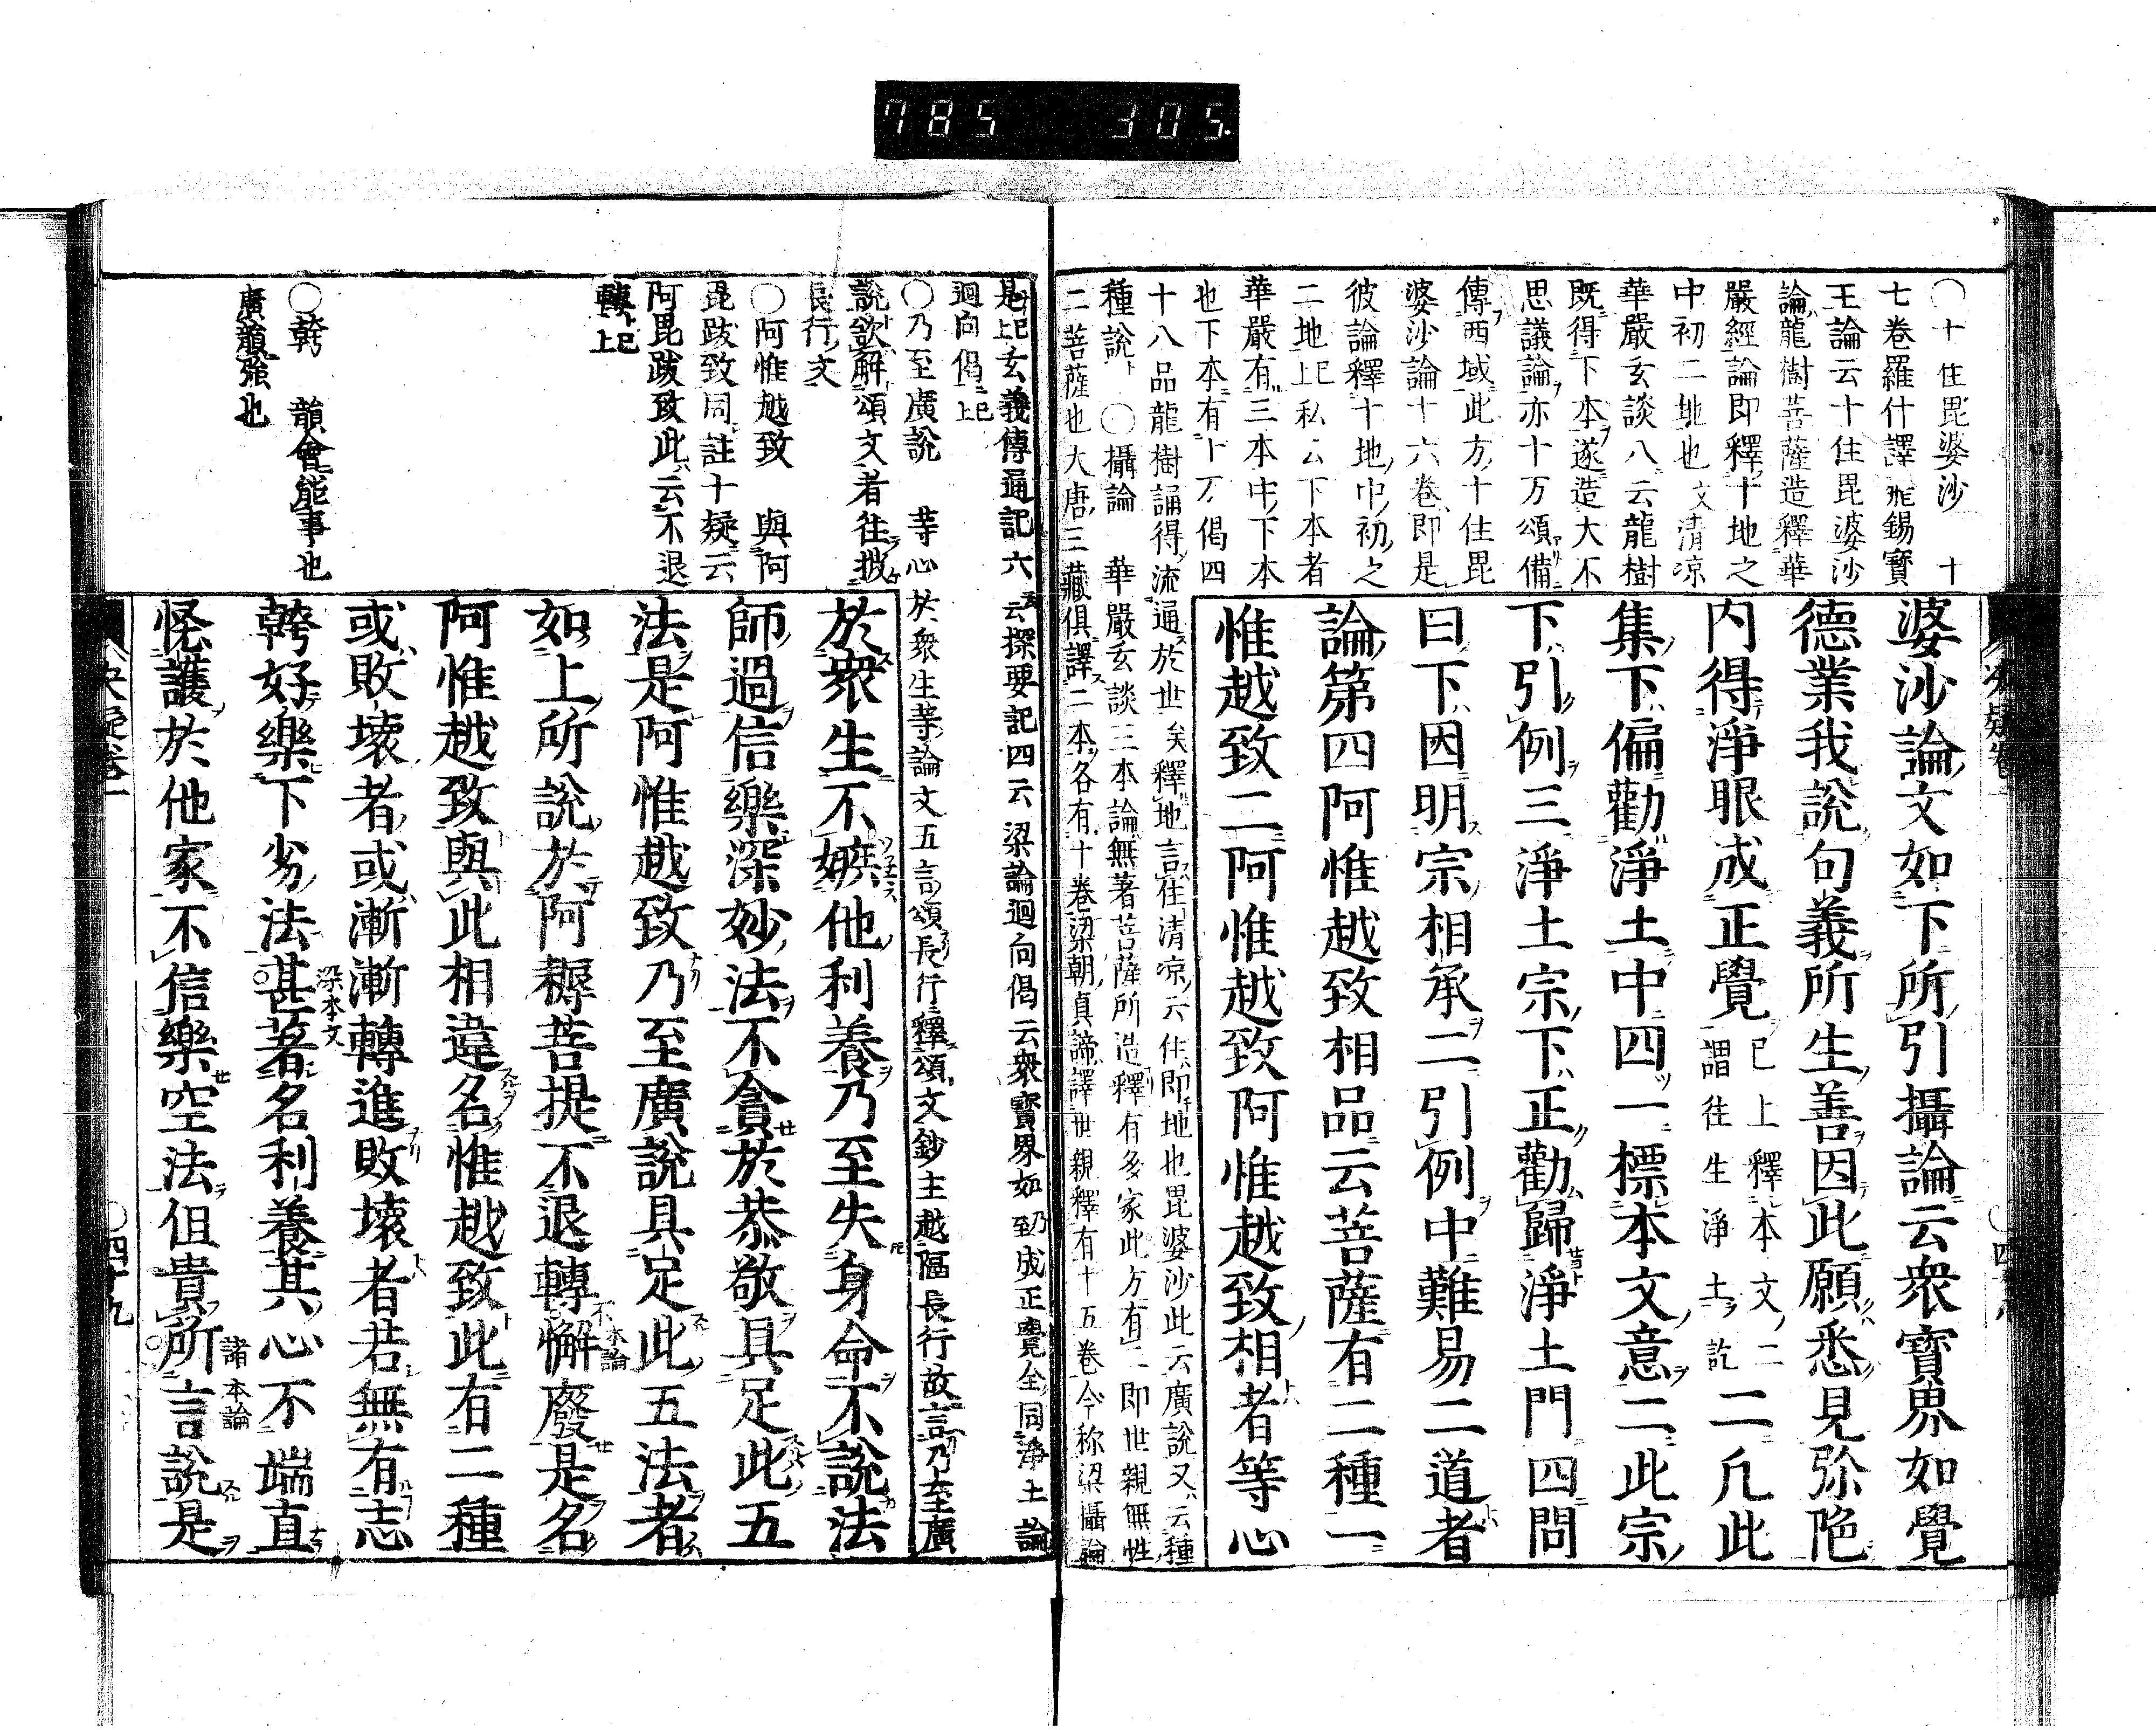 785 305.
○十住毘婆沙 十
七卷羅什譯飛錫寶
王論云十住毘婆沙
論龍樹菩薩造釋華
嚴經論即釋十地之
中初二地也文清凉
華嚴玄談八云龍樹
既得下本遂造大不
思議論亦十万頌備
傳西域此方十住毘
婆沙論十六卷即是
彼論釋十地中初之
二地已上私云下本者
華嚴有三本中下本
也下本有十万偈四
十八品龍樹誦得流通於世矣釋地言住清凉云住即地也毘婆沙此云廣說又云種
種說 ○攝論 華嚴玄談三本論無著菩薩所造釋有多家此方有二即世親無性
二菩薩也大唐三藏俱譯二本各有十卷梁朝真諦譯世親釋有十五卷今称梁攝論
婆沙論文如下所引攝論云衆寶界如覺
德業我說句義所生善因此願悉見弥陁
内得淨眼成正覺已上釋本文二謂往生淨土訖二凡此
集下偏勸淨土中四一標本文意二此宗
下引例三淨土宗下正勸歸淨土門四問
曰下因明宗相承二引例中難易二道者
論第四阿惟越致相品云菩薩有二種一
惟越致二阿惟越致阿惟越致相者等心
是已上玄義傳通記六云探要記四云梁論迴向偈云衆寶界如乃至成正覺全同淨土論
迴向偈已上
○乃至廣說 等心於衆生等論文五言頌長行釋頌文鈔主越隔長行故言乃至廣
說欲解頌文者往披
長行文
○阿惟越致 與阿
毘跋致同註十疑云
阿毘跋致此云不退
轉已上
○幹 韻會能事也
廣韻強也
於衆生不嫉他利養乃至失身命不說法
師過信樂深妙法不貪於恭敬具足此五
法是阿惟越致乃至廣說具足此五法者
如上所說於阿耨菩提不退轉不本論懈廢是名
阿惟越致與此相違名惟越致此有二種
或敗壞者或漸漸轉進敗壞者若無有志
幹好樂下劣法深本文甚著名利養其心不端直
悋護於他家不信樂空法但貴諸本論所言說是
決疑卷一
○四十九